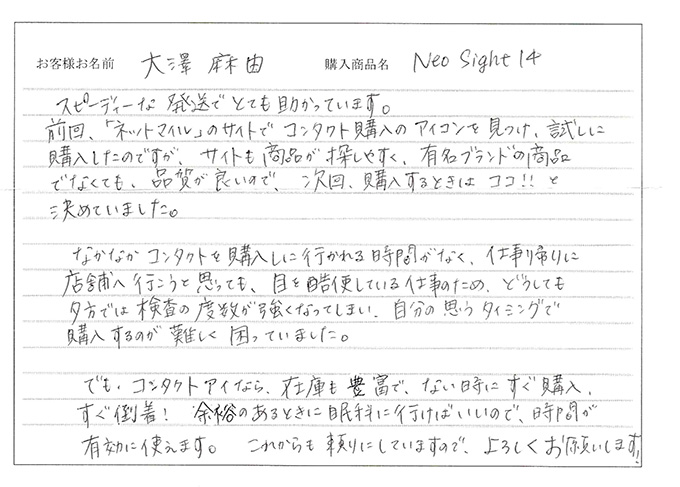 お客様お名前 大澤 麻由 購入商品名 Neo Sight 14
スピーディーな 発送で とても 助かっています。
前回、「ネットマイル」のサイトで コンタクト購入の アイコンを 見つけ、試しに
購入したのですが、 サイトも 商品が 探しやすく、有名ブランドの商品
でなくても、品質が良いので、 次回、購入するときは ココ!! と
決めていました。
なかなか コンタクトを購入しに行かれる時間がなく、仕事帰りに
店舗へ行こうと思っても、目を酷使している仕事のため、どうしても
夕方では検査の度数が強くなってしまい、自分の思う タイミングで
購入するのが 難しく 困っていました。
でも、コンタクトアイなら、在庫も 豊富で、ない時に すぐ購入、
すぐ到着! 余裕のあるときに眼科に行けばいいので、時間が
有効に使えます。 これからも 頼りにしていますので、よろしくお願いします!